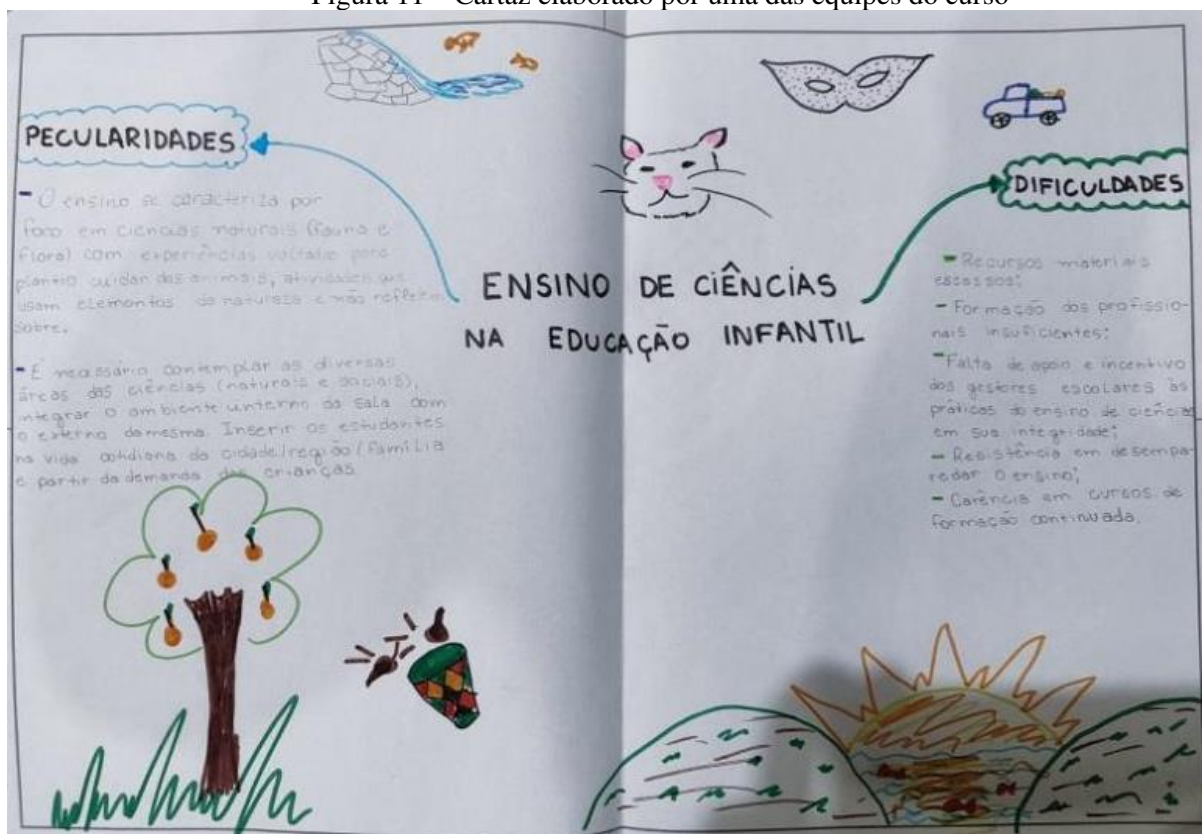 Figura 11 – Cartaz elaborado por uma das equipes do curso
PECULARIDADES
- O ensino se caracteriza por
foco em ciências naturais (fauna e
flora) com experiências voltadas para
plantio cuidar dos animais, atividades que
usam elementos da natureza e não refletem
sobre.
- É necessário contemplar as diversas
áreas das ciências (naturais e sociais),
integrar o ambiente interno da sala com
o externo da mesma. Inserir os estudantes
na vida cotidiana da cidade/região/família
a partir da demanda das crianças
ENSINO DE CIÊNCIAS
NA EDUCAÇÃO INFANTIL
DIFICULDADES
- Recursos materiais
escassos;
- Formação dos profissio-
nais insuficientes;
- Falta de apoio e incentivo
dos gestores escolares às
práticas do ensino de ciências
em sua integridade;
- Resistência em desempa-
redar o ensino;
- Carência em cursos de
formação continuada.